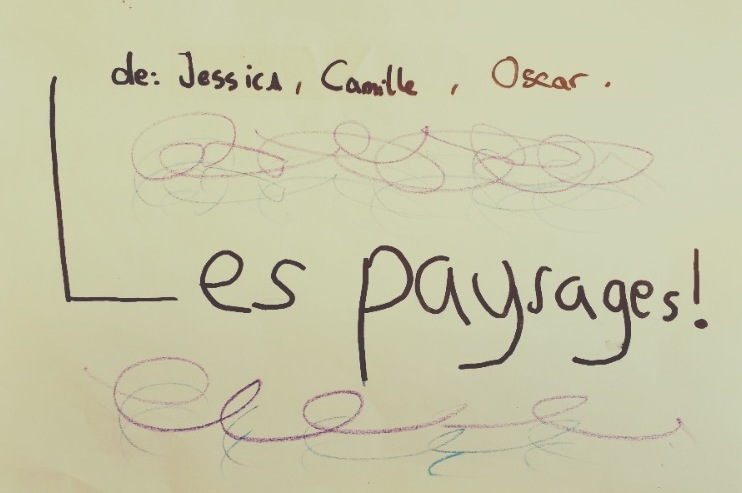 de: Jessica, Camille, Oscar.
Les paysages!